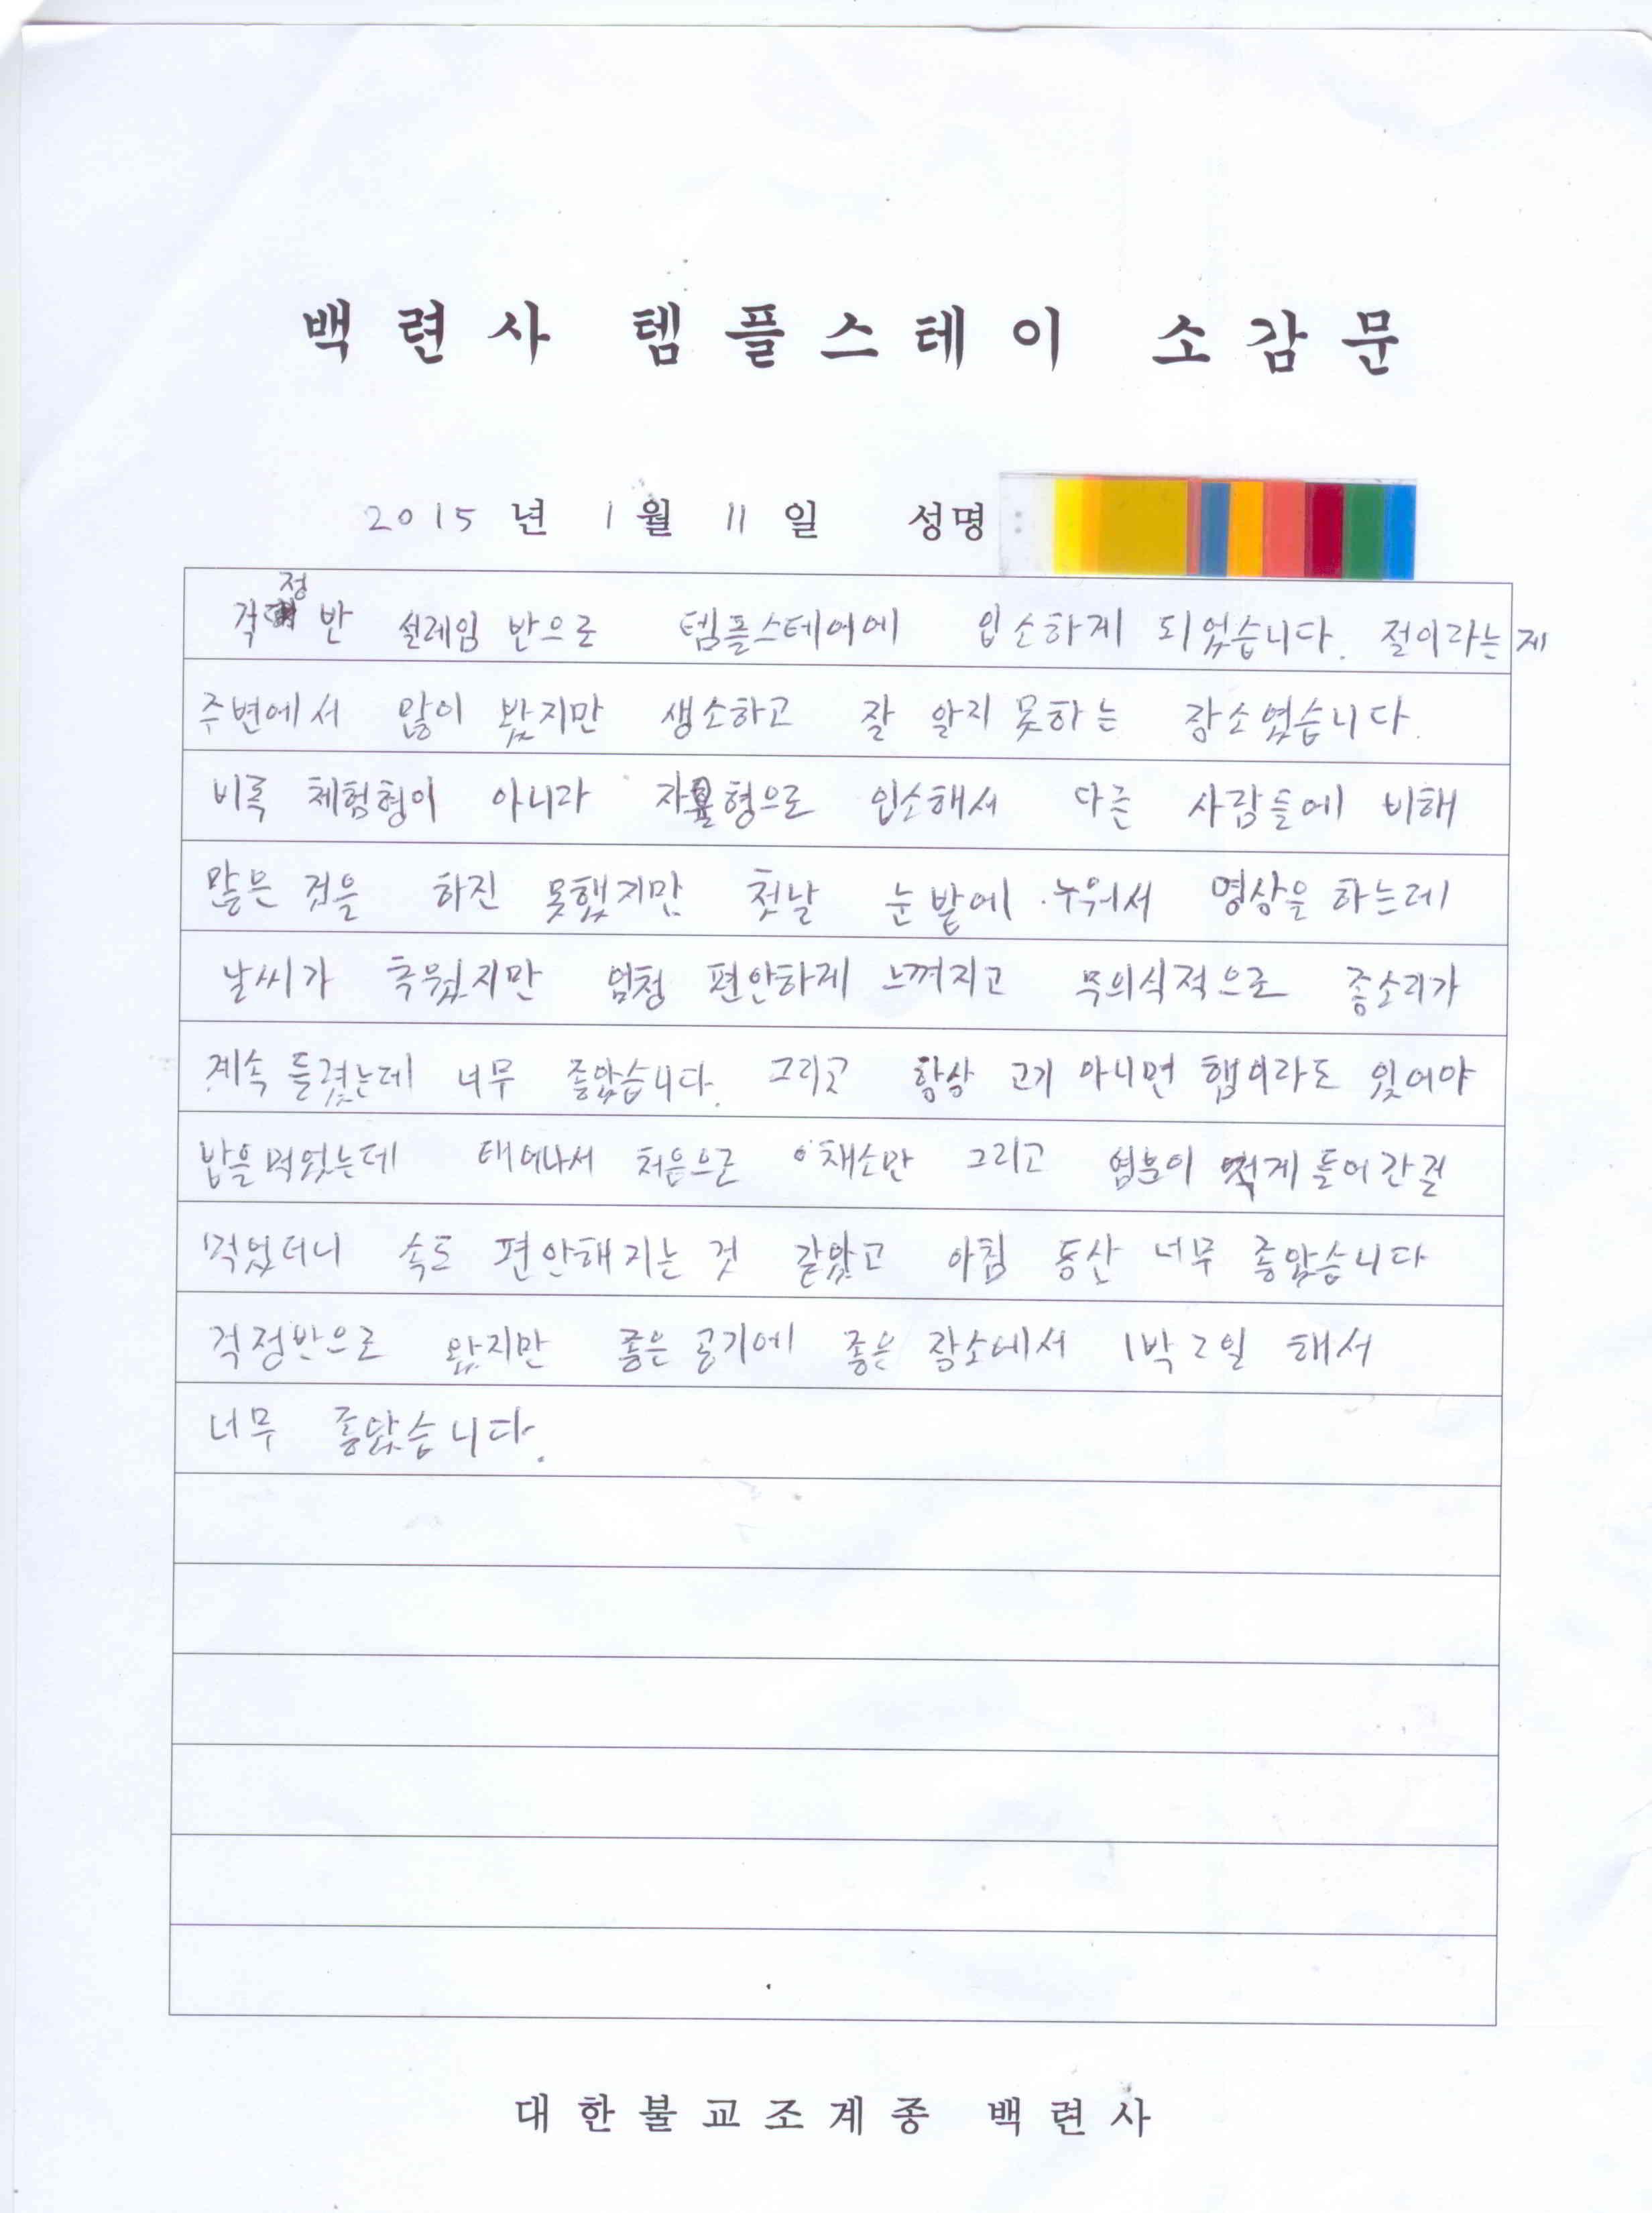 백련사 템플스테이 소감문
2015 년 1 월 11 일 성명 :
걱정 반 설레임 반으로 템플스테이에 입소하게 되었습니다. 절이라는 게
주변에서 많이 봤지만 생소하고 잘 알지 못하는 장소였습니다.
비록 체험형이 아니라 자율형으로 입소해서 다른 사람들에 비해
많은 것을 하진 못했지만 첫날 눈밭에 누워서 명상을 하는데
날씨가 추웠지만 엄청 편안하게 느껴지고 무의식적으로 종소리가
계속 들렸는데 너무 좋았습니다. 그리고 항상 고기 아니면 햄이라도 있어야
밥을 먹었는데 태어나서 처음으로 야채소만 그리고 염분이 적게 들어간걸
먹었더니 속도 편안해지는 것 같았고 아침 등산 너무 좋았습니다
걱정반으로 왔지만 좋은 공기에 좋은 장소에서 1박 2일 해서
너무 좋았습니다.
대한불교조계종 백련사